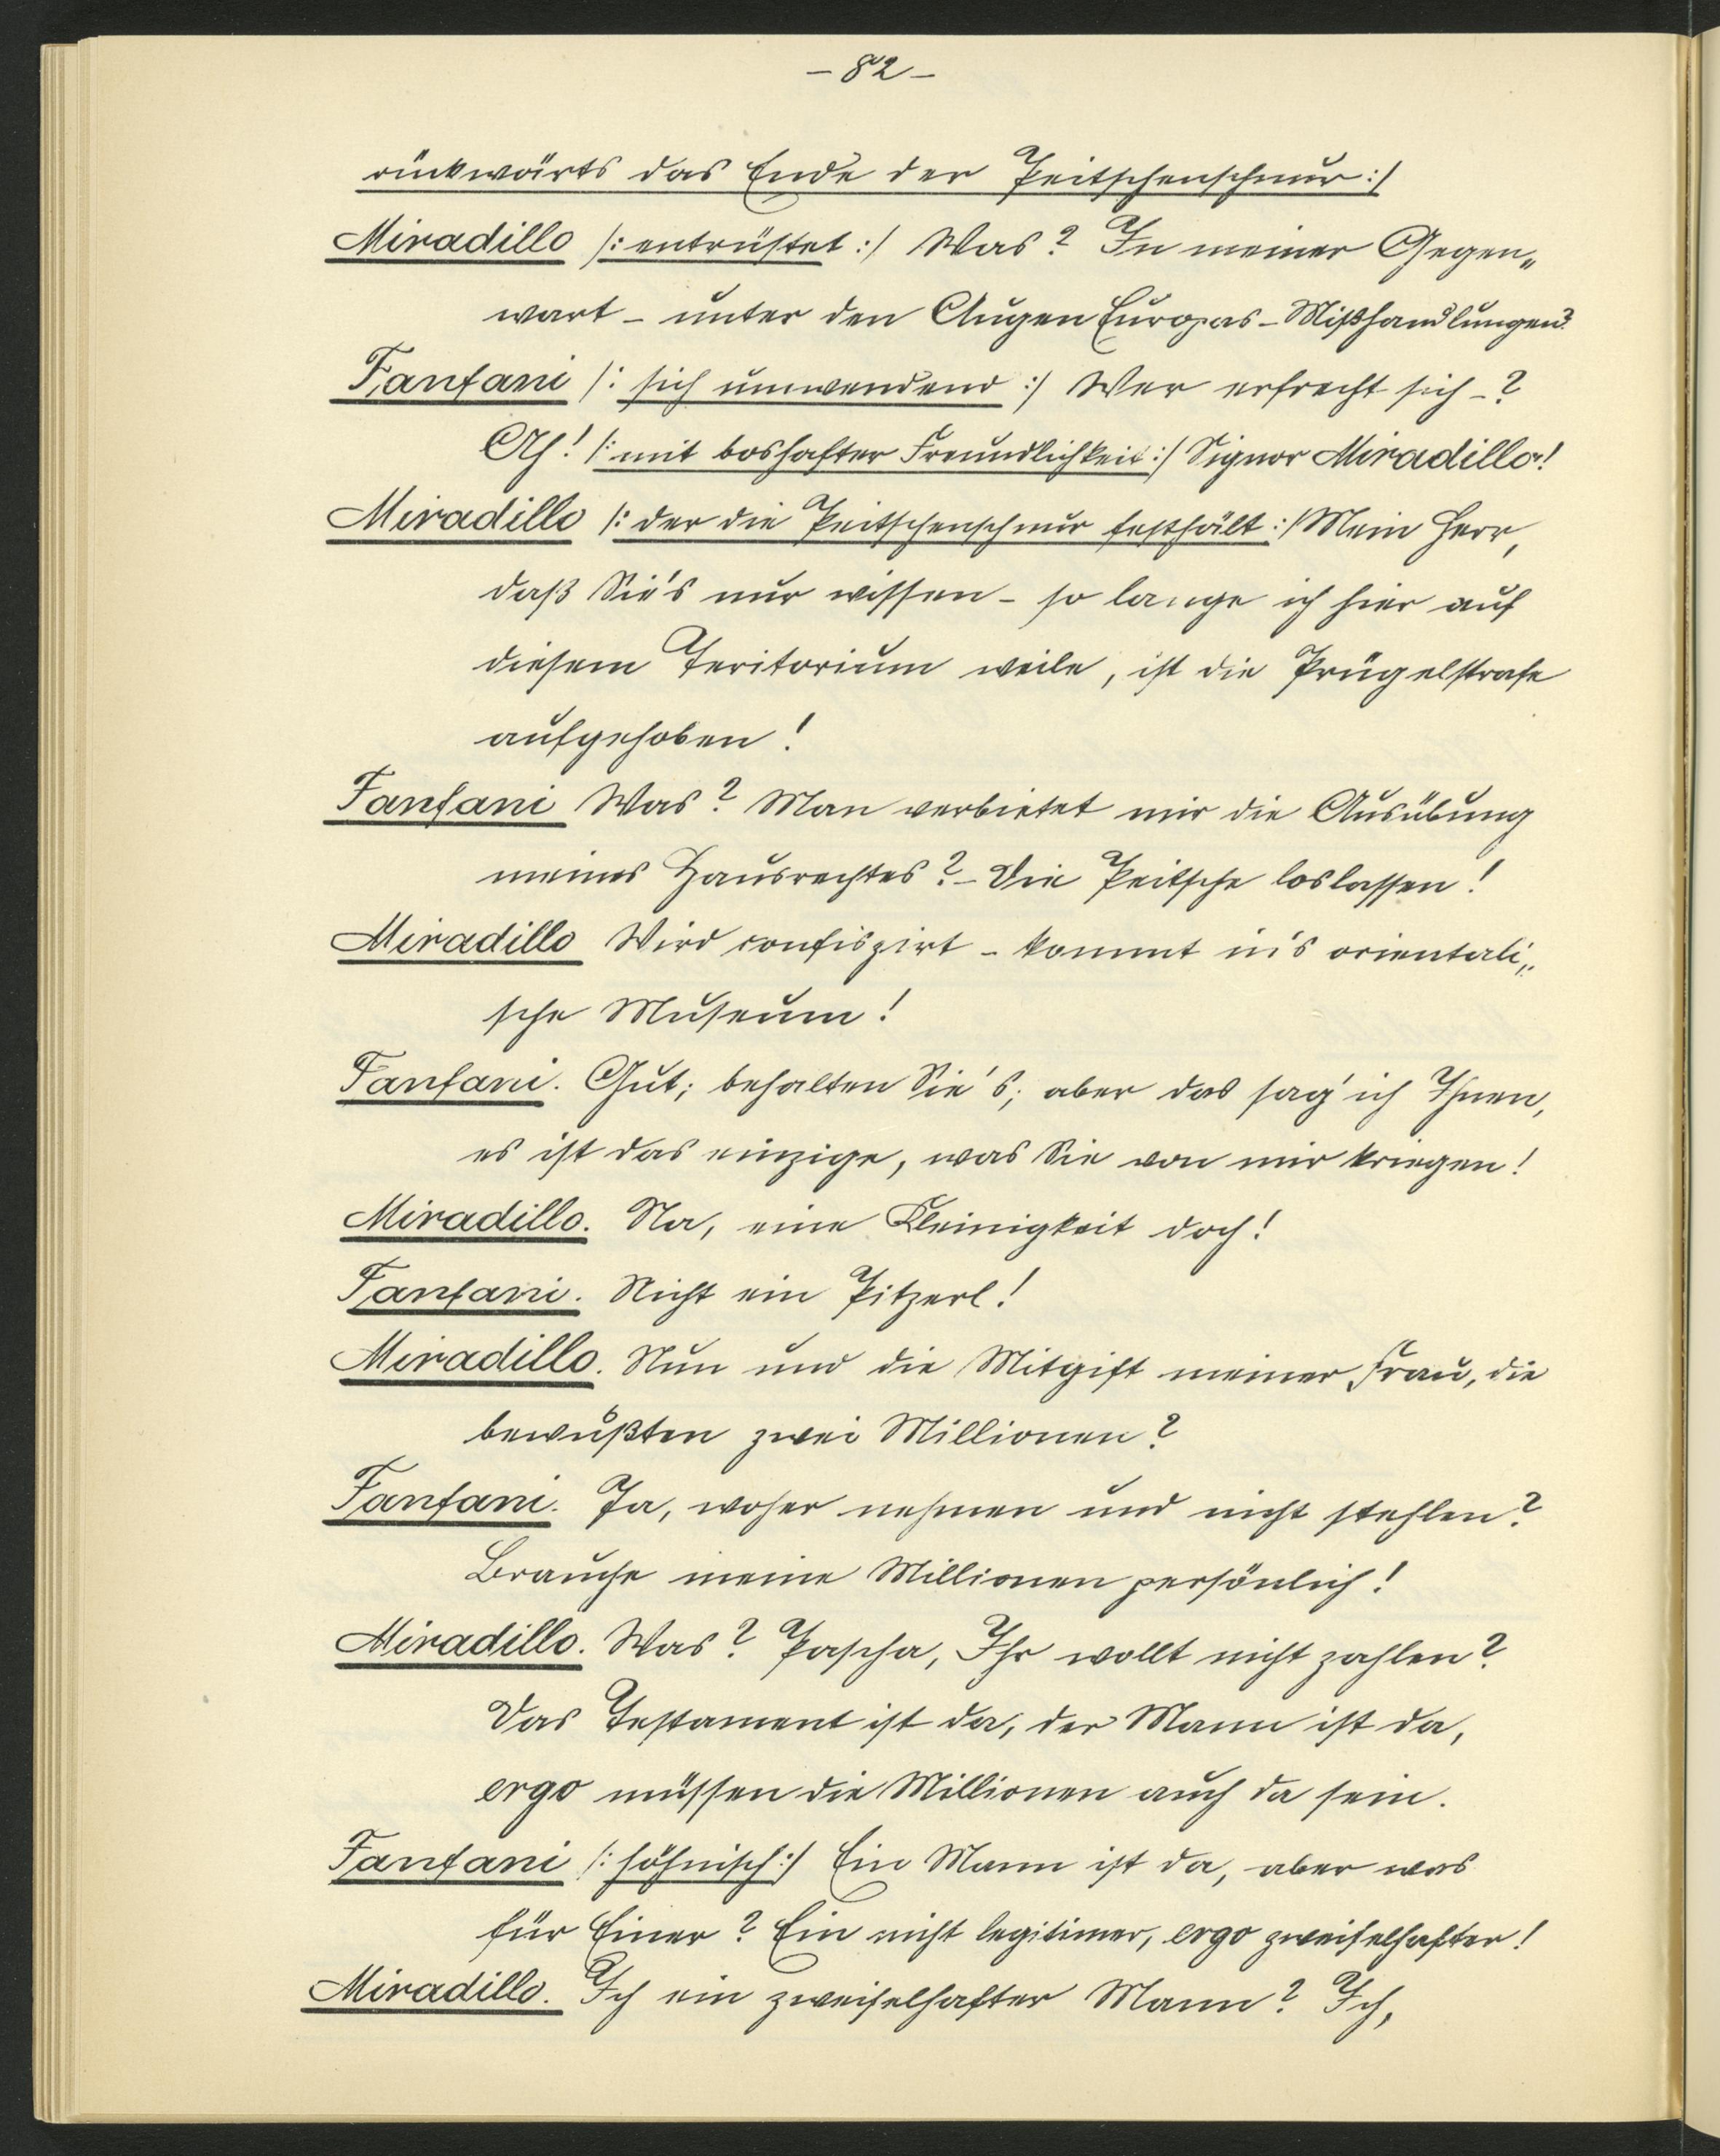 - 82 -
rückwärts das Ende der Peitschenschnur :/
Miradillo /: entrüstet :/ Was? In meiner Gegen„
wart - unter den Augen Europas - Mißhandlungen?
Fanfani /: sich umwendend :/ Wer erfrecht sich -?
Ah! /: mit boshafter Freundlichkeit :/ Signor Miradillo!
Miradillo /: der die Peitschenschnur festhält :/ Mein Herr,
daß Sie's nur wissen - so lange ich hier auf
diesem Teritorium weile, ist die Prügelstrafe
aufgehoben!
Fanfani Was? Man verbietet mir die Ausübung
meines Hausrechtes? - Die Peitsche loslassen!
Miradillo Wird confiszirt - kommt in's orientali„
sche Museum!
Fanfani. Gut; behalten Sie's; aber das sag' ich Ihnen,
es ist das einzige, was Sie von mir kriegen!
Miradillo. Na, eine Kleinigkeit doch!
Fanfani. Nicht ein Pitzerl!
Miradillo. Nun und die Mitgift meiner Frau, die
bewußten zwei Millionen?
Fanfani. Ja, woher nehmen und nicht stehlen?
Brauche meine Millionen persönlich!
Miradillo. Was? Pascha, Ihr wollt nicht zahlen?
Das Testament ist da, der Mann ist da,
ergo müssen die Millionen auch da sein.
Fanfani /: höhnisch :/ Ein Mann ist da, aber was
für Einer? Ein nicht legitimer, ergo zweifelhafter!
Miradillo. Ich ein zweifelhafter Mann? Ich,